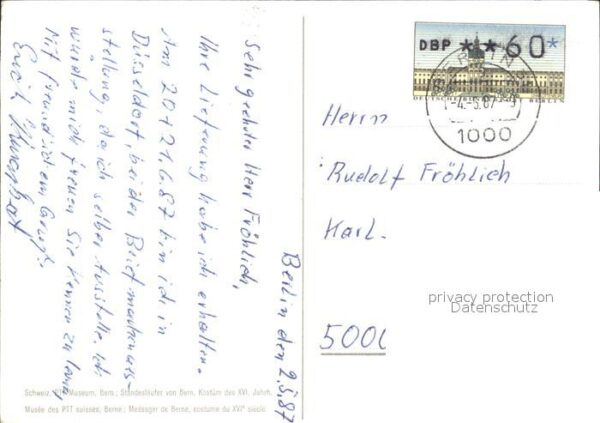 Berlin den 2.5.87
Sehr geehrter Herr Fröhlich,
Ihre Lieferung habe ich erhalten.
Am 20+21.6.87 bin ich in
Düsseldorf, bei der Briefmarkenaus-
stellung, da ich selber Ausstelle. Ich
würde mich freuen Sie kennen zu lernen
Mit freundlichem Gruß.
DBP **60*
DEUTSCHE BUNDESPOST BERLIN
BERLIN
-4.-5.87-
1000
Herrn
Rudolf Fröhlich
Karl.
5000
privacy protection
Datenschutz
Schweiz. PTT-Museum, Bern: Standesläufer von Bern, Kostüm des XVI. Jahrh.
Musée des PTT suisses, Berne: Messager de Berne, costume du XVIe siècle